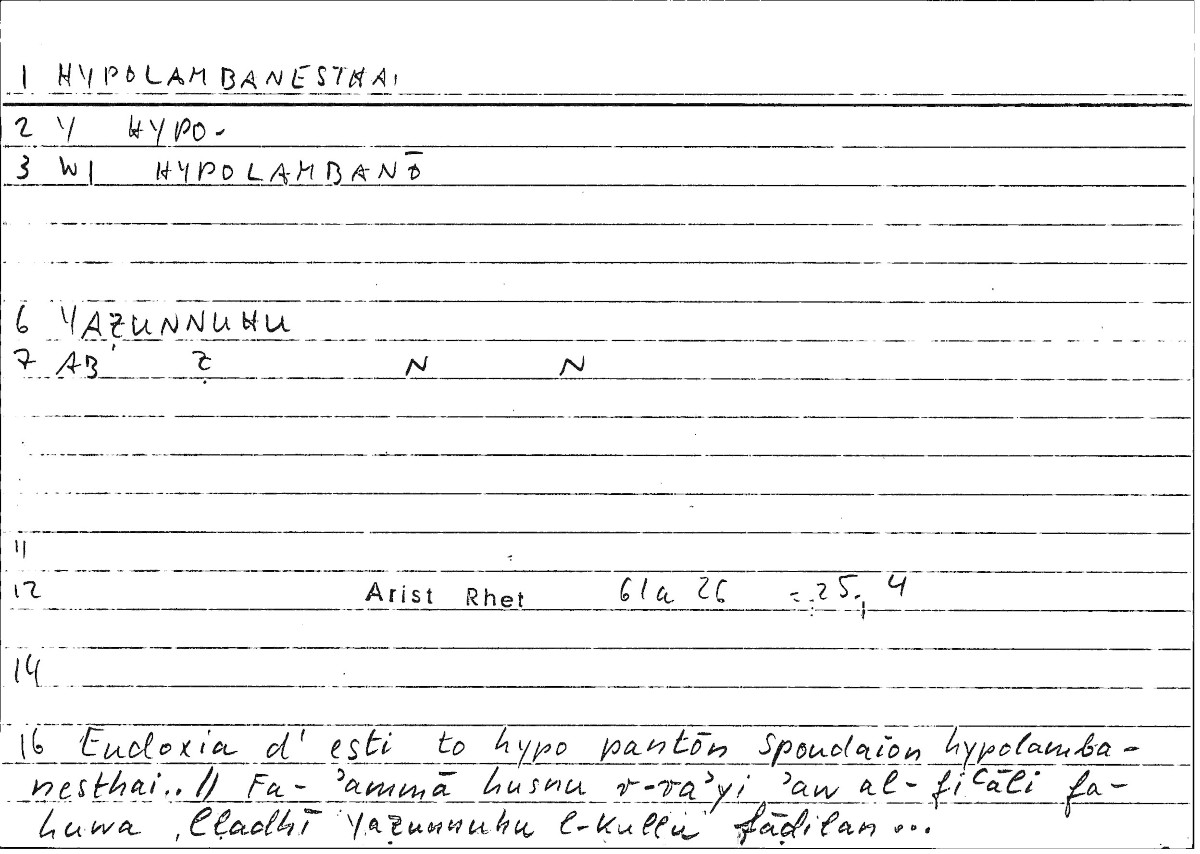 1 HYPOLAMBANESTHAI
2 Y HYPO-
3 WI HYPOLAMBANŌ
6 YAẒUNNUHU
7 AB' Ẓ N N
11
12 Arist Rhet 61a 26 = 25, 4
14
16 Eudoxia d' esti to hypo pantōn spoudaion hypolamba-
nesthai.. // Fa- ʾammā husnu r-raʾyi ʾaw al-fiʿāli fa-
huwa ,lladhī yaẓunnuhu l-kullu fāḍilan ...